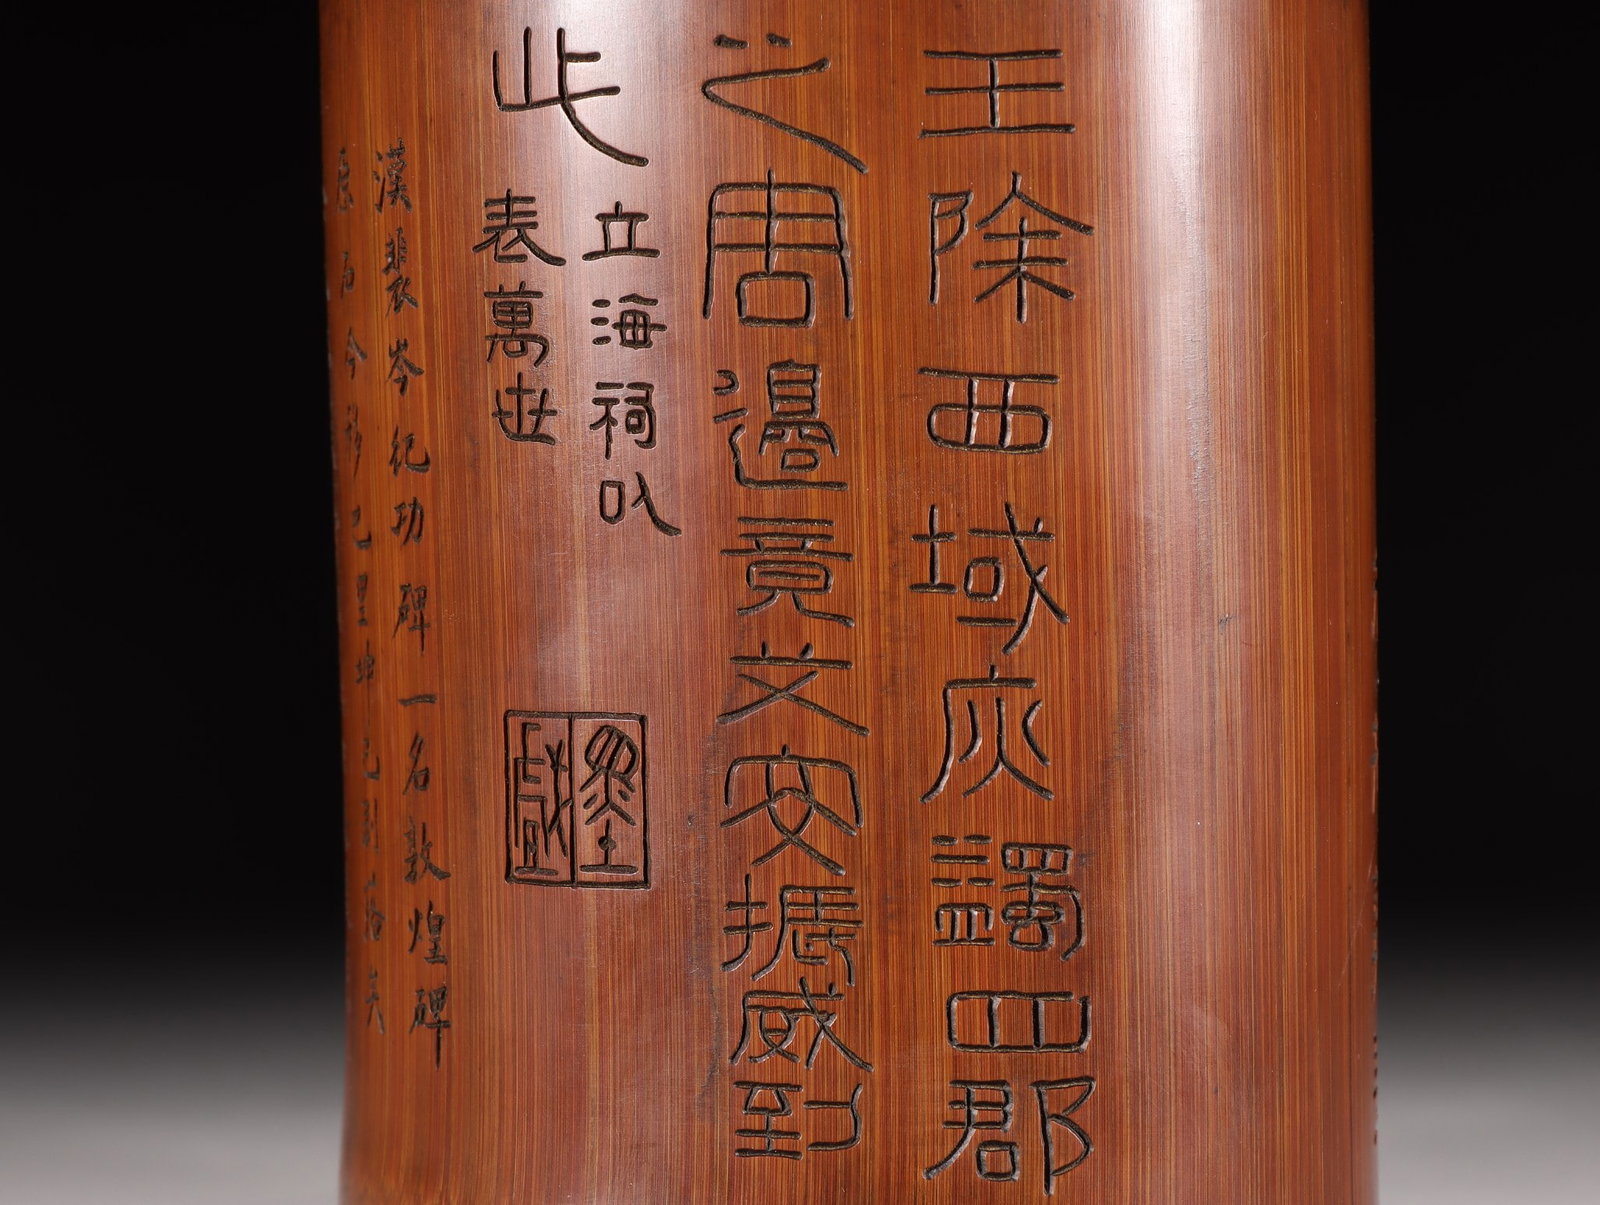 王除西域疢蠲四郡
之害邊竟艾安振威到
此立海祠以
表萬世
漢裴岑紀功碑一名敦煌碑
原石今移巴里坤已剝落矣